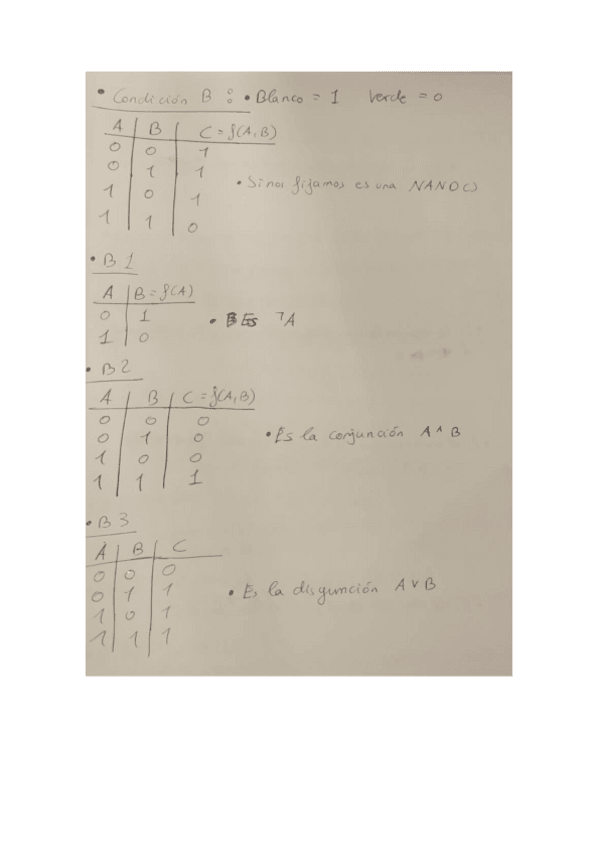 • Condición B : • Blanco = 1 Verde = 0
A B C = f(A,B)
0 0 1
0 1 1
• Si nos fijamos es una NAND()
1 0 1
1 1 0
• B 1
A B = f(A)
0 1
• B Es ¬A
1 0
• B 2
A B C = f(A,B)
0 0 0
0 1 0
• Es la conjunción A ^ B
1 0 0
1 1 1
• B 3
A B C
0 0 0
0 1 1
• Es la disgunción A v B
1 0 1
1 1 1